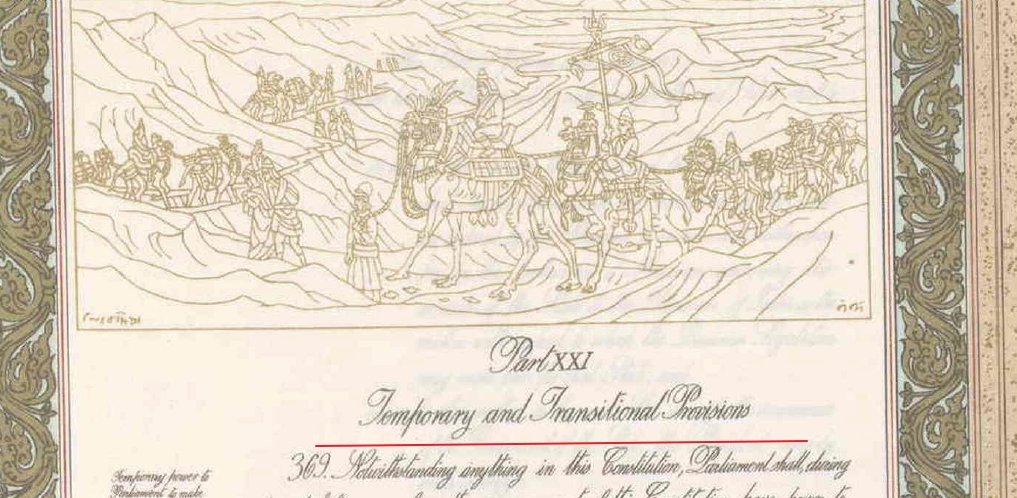 Part XXI
Temporary and Transitional Provisions
369. Notwithstanding anything in this Constitution, Parliament shall, during
Temporary power to
Parliament to make